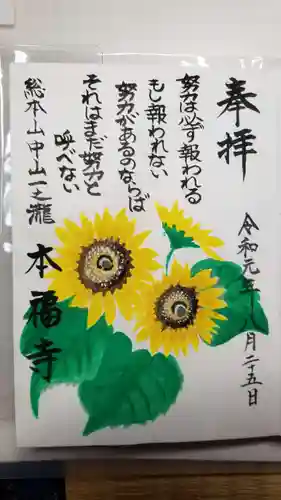 奉拝
令和元年八月二十五日
努力は必ず報われる
もし報われない
努力があるのならば
それはまだ努力と
呼べない
総本山中山一之瀧
本福寺